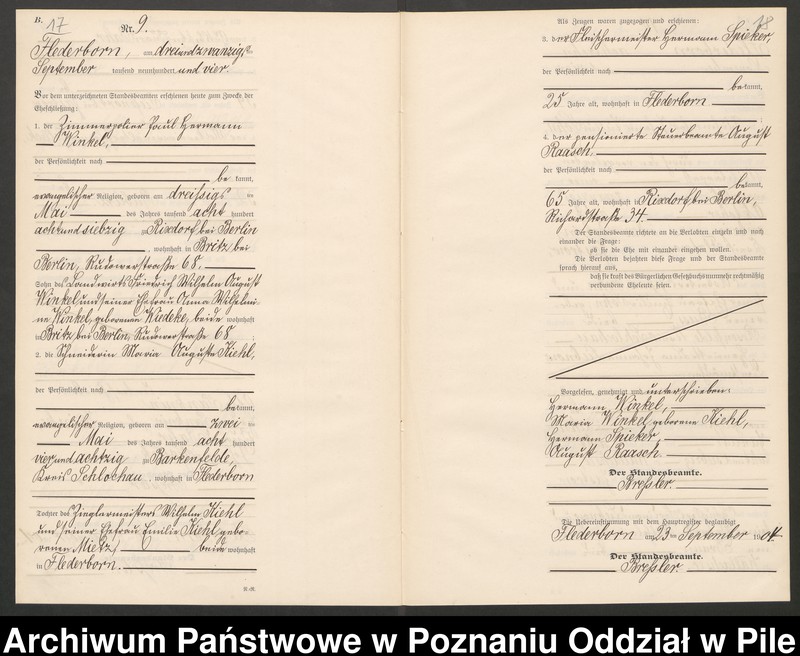 B.
17
Nr. 9.
Flederborn, am dreiundzwanzigsten
September tausend neunhundert und vier.
Vor dem unterzeichneten Standesbeamten erschienen heute zum Zwecke der
Eheschließung:
1. der Zimmerpolier Paul Hermann
Winkel,
der Persönlichkeit nach
bekannt,
evangelischer Religion, geboren am dreißigsten
Mai des Jahres tausend acht hundert
achtundsiebzig in Rixdorf bei Berlin
, wohnhaft in Britz bei
Berlin, Rudowerstraße 68,
Sohn des Landwirts Friedrich Wilhelm August
Winkel und seiner Ehefrau Anna Wilhelmi-
ne Winkel, geborenen Wiedeke, beide wohnhaft
in Britz bei Berlin, Rudowerstraße 68;
2. die Schneiderin Maria Auguste Kiehl,
der Persönlichkeit nach
bekannt,
evangelischer Religion, geboren am zwei-
Mai des Jahres tausend acht hundert
vierundachtzig in Barkenfelde,
Kreis Schlochau, wohnhaft in Flederborn
Tochter des Zieglermeisters Wilhelm Kiehl
und seiner Ehefrau Emilie Kiehl, gebo-
renen Mietz, beide wohnhaft
in Flederborn.
18
Als Zeugen waren zugezogen und erschienen:
3. der Fleischermeister Hermann Spieker,
der Persönlichkeit nach
bekannt,
25 Jahre alt, wohnhaft in Flederborn
;
4. der pensionierte Steuerbeamte August
Raasch
der Persönlichkeit nach
bekannt,
65 Jahre alt, wohnhaft in Rixdorf bei Berlin,
Richardstraße 34.
Der Standesbeamte richtete an die Verlobten einzeln und nach
einander die Frage:
ob sie die Ehe mit einander eingehen wollen.
Die Verlobten bejahten diese Frage und der Standesbeamte
sprach hierauf aus,
daß sie kraft des Bürgerlichen Gesetzbuchs nunmehr rechtmäßig
verbundene Eheleute seien.
Vorgelesen, genehmigt und unterschrieben:
Hermann Winkel,
Maria Winkel, geborene Kiehl,
Hermann Spieker,
August Raasch.
Der Standesbeamte.
Breßler.
Die Uebereinstimmung mit dem Hauptregister beglaubigt
Flederborn am 23ten September 1904.
Der Standesbeamte.
Breßler.
Archiwum Państwowe w Poznaniu Oddział w Pile